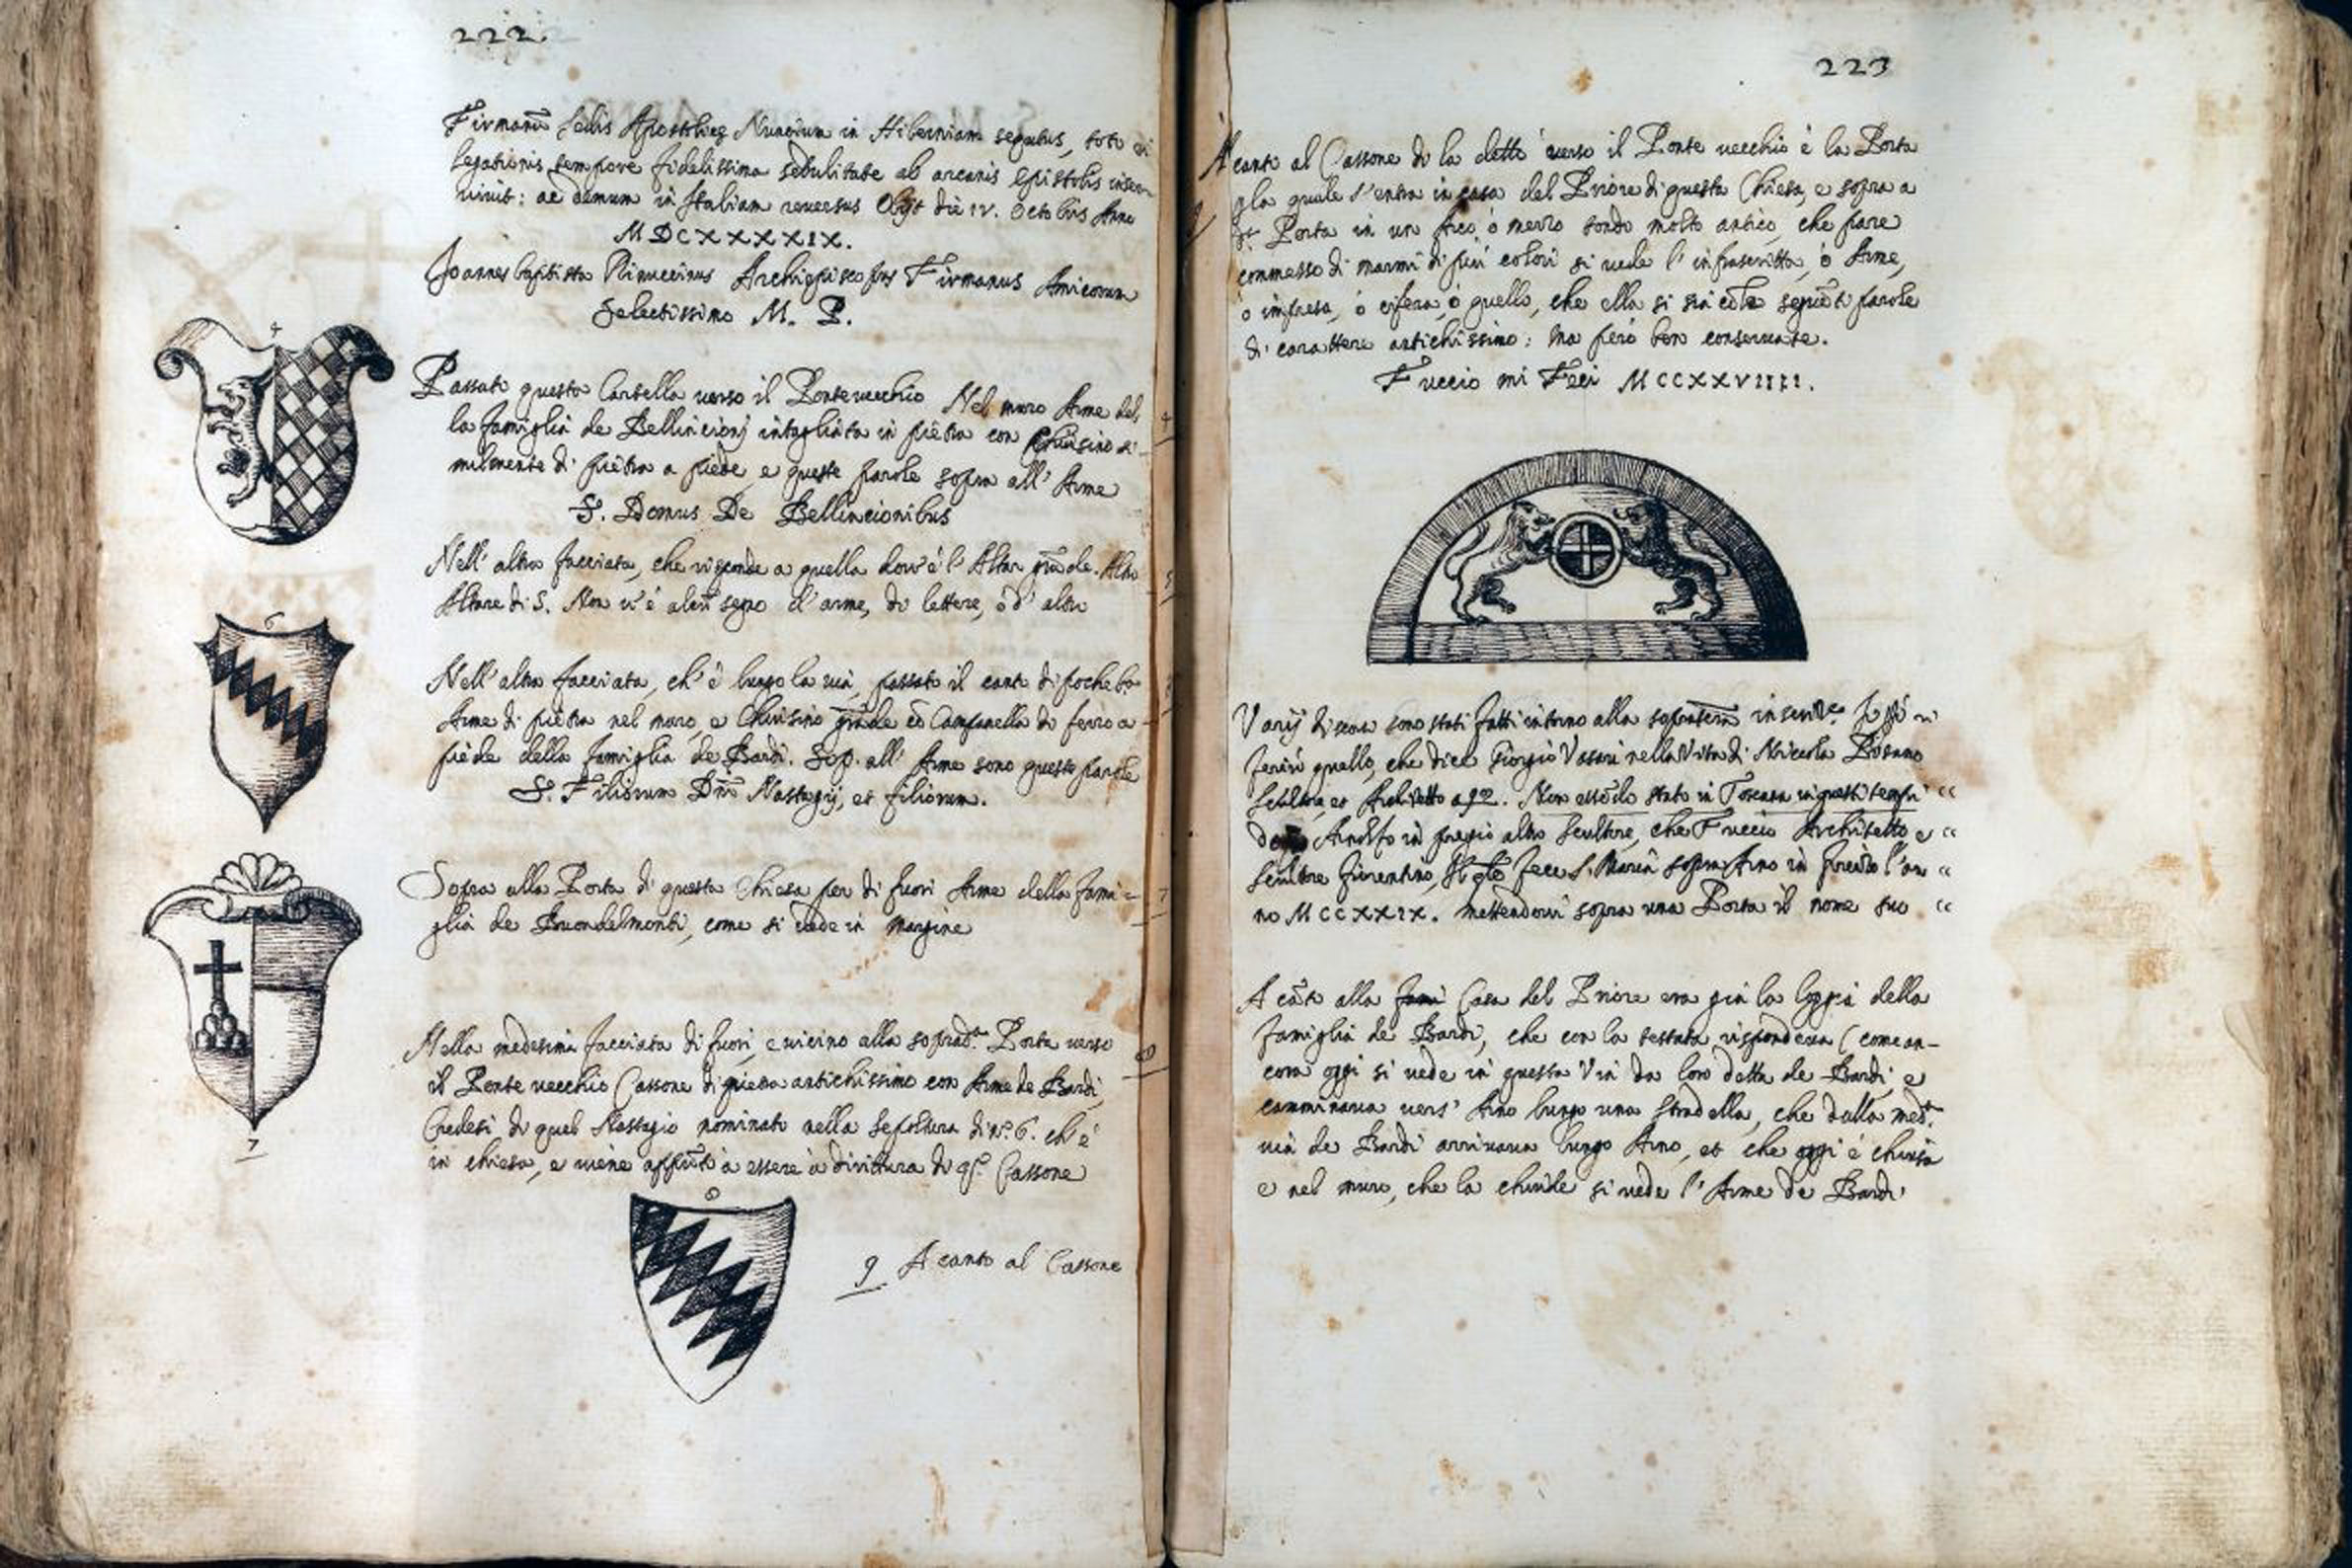 222.
Firmanū Sedis Apostolicę Nuncium in Hiberniam sequtus, toto
legationis tempore fidelissima sedulitate ab arcanis Epistolis inser
uiuit: ac demum in Italiam reuersus Obijt die IV. Octobris Anno
MDCXXXXIX.
Joannes Baptista Rinuccinus Archiepiscopus Firmanus Amicorum
Selectissimo M. P.
4
Passato questo Cartella verso il Pontevecchio Nel muro Arme del
4
la famiglia de Bellincionj intagliata in pietra con Chiusino si-
milmente di pietra a piede, e queste parole sopra all' Arme
S. Domus De Bellincionibus
Nell' altra facciata, che risponde a quella dov'è l' Altar grāde. Altro
5
Altare di S. Non v'è alcū segno d' arme, di lettere, ò d' altro
6
Nell' altra facciata, ch' è lungo la via, passato il canto di
Arme di pietra nel muro, e Chiusino grāde cō Campanella di ferro a
piede della famiglia de Bardi. Sop. all' Arme sono queste parole
S. Filiorum Dnī Nastagij, et filiorum.
Sopra alla Porta di questa Chiesa per di fuori Arme della fami=
7
glia de Buondelmonti, come si vede in margine
7
Nella medesima facciata di fuori, e vicino alla soprad.ª Porta verso
8
il Ponte vecchio Cassone di pietra antichissimo con Arme de Bardi,
Credesi di quel Nastagio nominato nella sepoltura di nº. 6. ch' è
in chiesa, e viene appūto à essere à dirittura di qº. Cassone
8
9 A canto al Cassone
223
A canto al Cassone di la detto verso il Ponte vecchio è la Porta
9
p la quale s'entra in casa del Priore di questa Chiesa, e sopra a
Porta in un Arco, ò mezzo tondo molto antico, che pare
commesso di marmi di più colori si vede l' infrascritta, ò Arme,
ò impresa, ò cifera, ò quello, che ella si sia cō le seguēti parole
di carattere antichissimo: ma però ben conseruate.
Fuccio mi Feci MCCXXVIIII.
Varij discorsi sono stati fatti intorno alla sopra inscritt.ᵉ
ferirò quello, che dice Giorgio Vasari nella Vita di Niccola Pisano
scultore, et Architetto a Non essēdo stato in Toscana in questi tempi “
Arnolfo in pregio altro Scultore, che Fuccio Architetto e “
scultore fiorentino, Il qle fece S. Maria sopr'Arno in firēze l'an “
no MCCXXIX. mettendovi sopra una Porta il nome suo “
A cāto alla Casa del Priore era già la loggia della
famiglia de Bardi, che con la testata rispondeua (come an-
cora oggi si vede in questa Via da loro detta de Bardi, e
camminaua vers' Arno lungo una stradella, che dalla med.ª
via de Bardi arriuaua lungo Arno, et che oggi è chiusa
e nel muro, che la chiude si vede l' Arme de Bardi